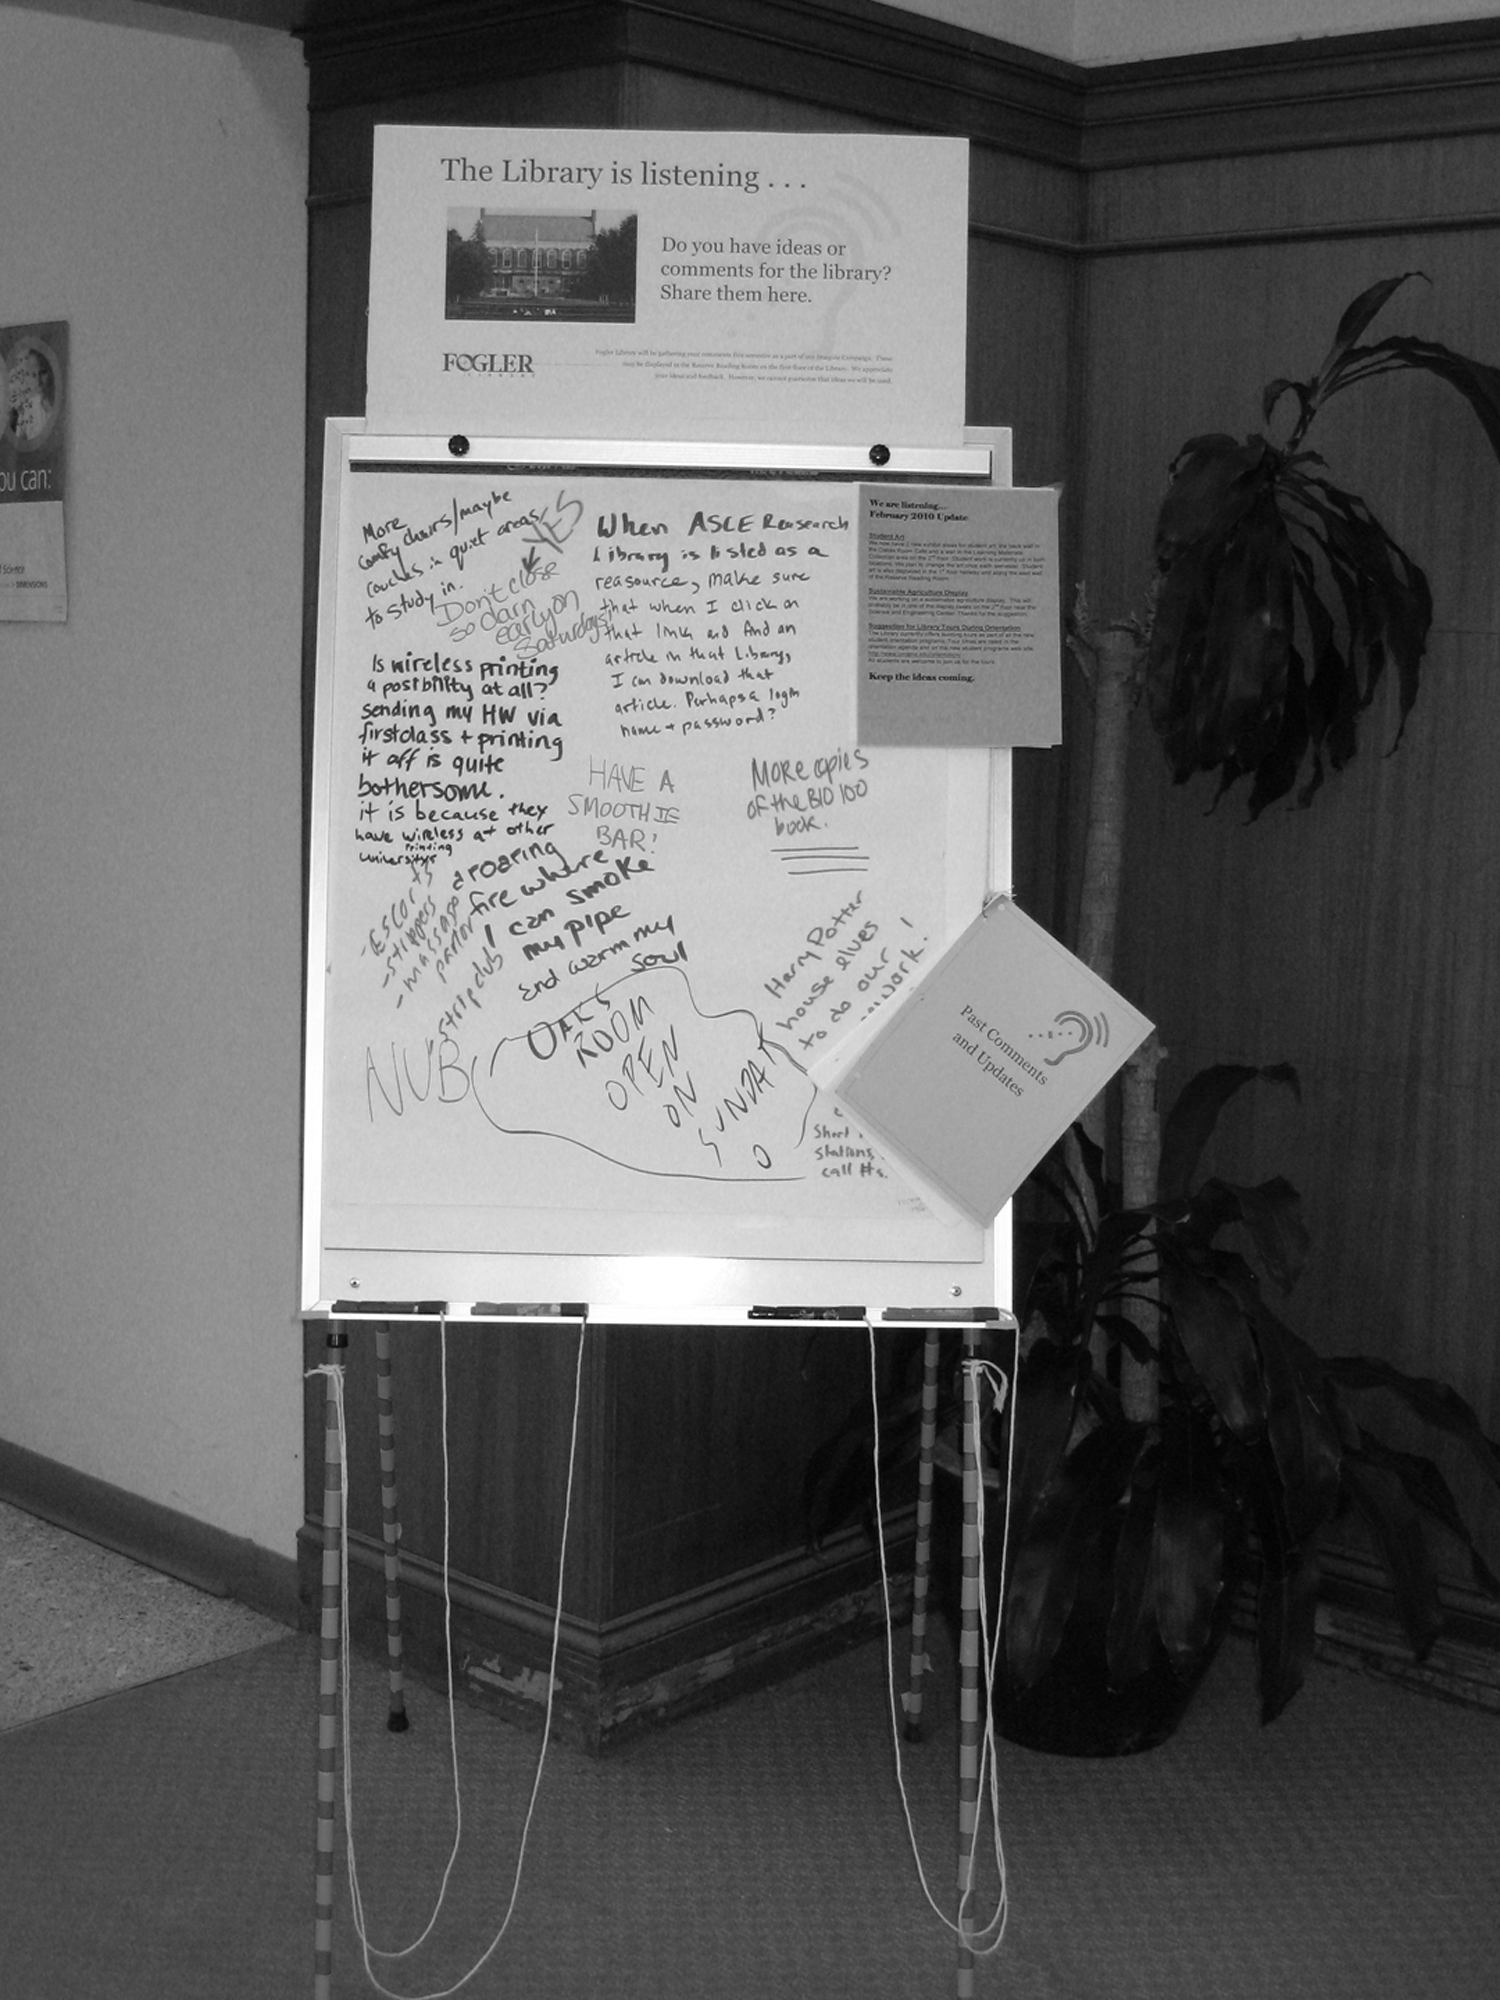 The Library is listening . . .
Do you have ideas or
comments for the library?
Share them here.
FOGLER
LIBRARY
Fogler Library will be gathering your comments this semester as a part of our Imagine Campaign. These
may be displayed in the Reserve Reading Room on the first floor of the Library. We appreciate
your ideas and feedback. However, we cannot guarantee that ideas we will be used.
ou can:
DIMENSIONS
More
comfy chairs/maybe
couches in quiet areas
to study in.
YES
Don't close
so darn
early on
Saturdays!
When ASCE Reasearch
Library is listed as a
reasource, make sure
that when I click on
that link and find an
article in that Library,
I can download that
article. Perhaps a login
name + password?
We are listening...
February 2010 Update
Student Art
Sustainable Agriculture Display
Suggestion for Library Tours During Orientation
Keep the ideas coming.
Is wireless printing
a postbility at all?
sending my HW via
firstclass + printing
it off is quite
bothersome.
it is because they
have wireless at other
printing
universitys
HAVE A
SMOOTHIE
BAR!
More copies
of the BIO 100
book.
a roaring
fire where
I can smoke
my pipe
and warm my
soul
-Escorts
-strippers
-massage
parlor
-strip club
NUB
OAKS
ROOM
OPEN
ON
SUNDAY
Harry Potter
house elves
to do our
work!
Past Comments
and Updates
Short
stations,
call #s.